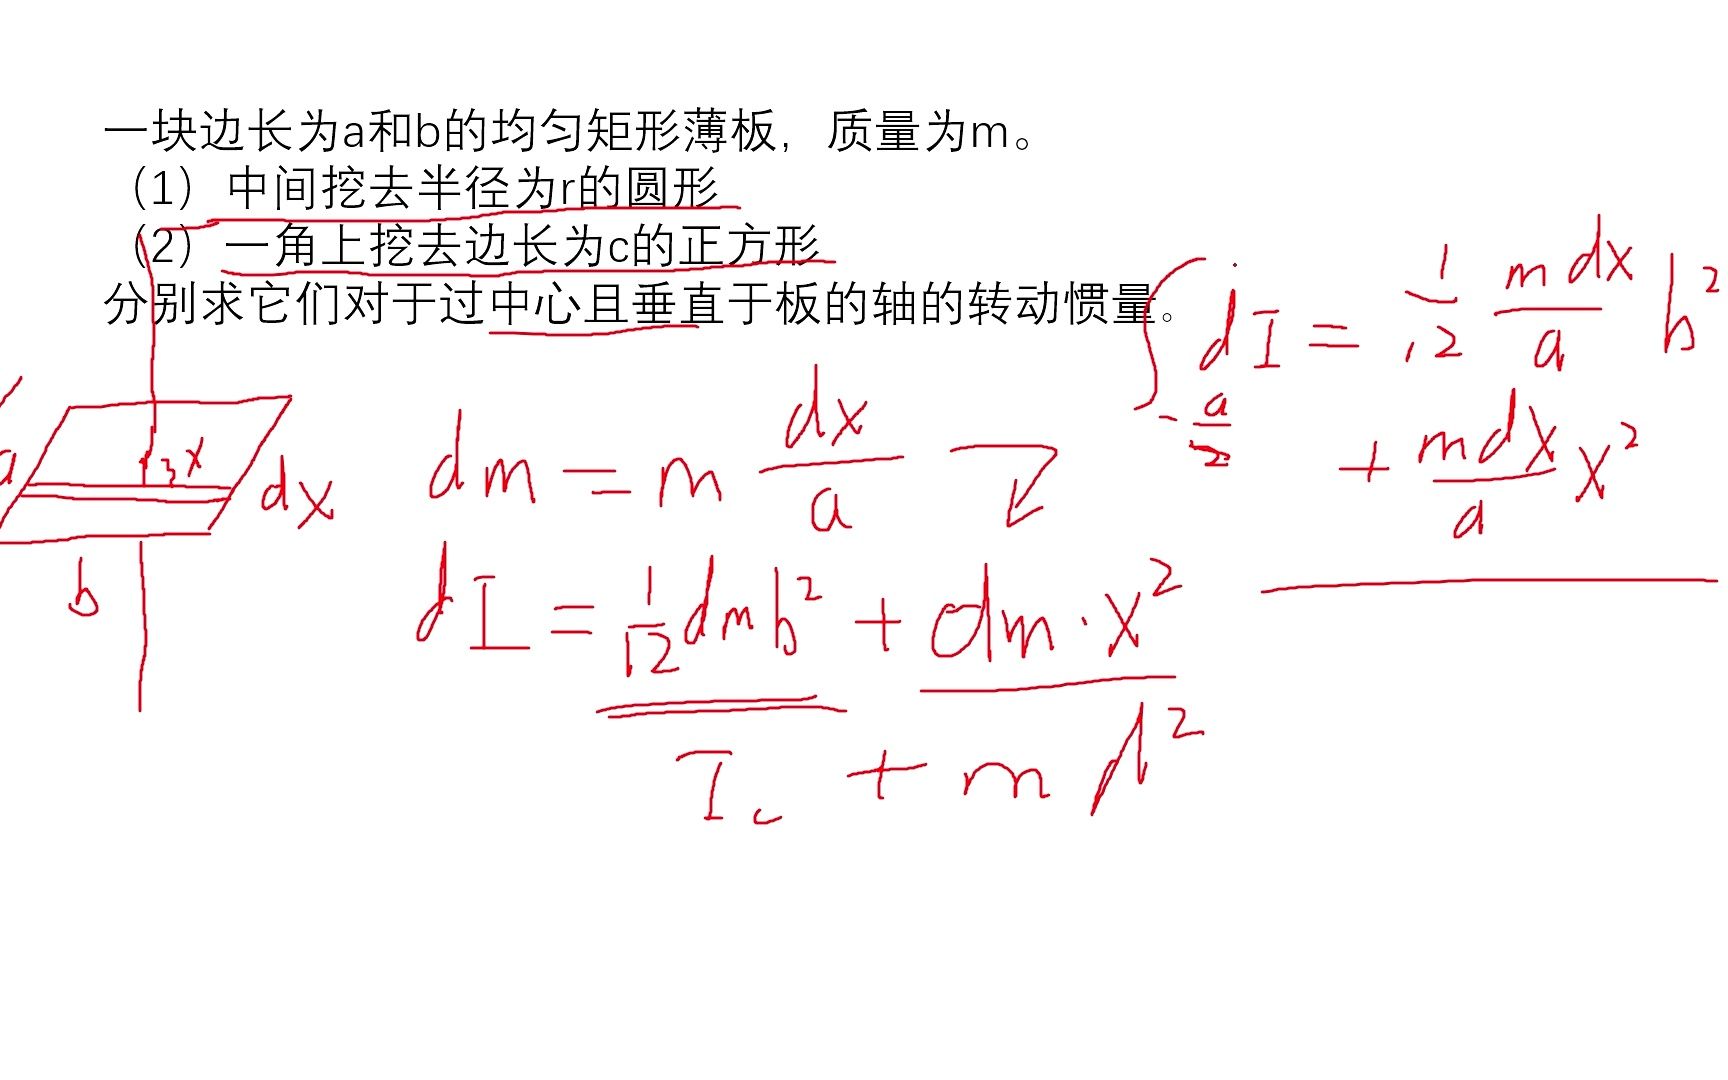 一块边长为a和b的均匀矩形薄板，质量为m。
（1）中间挖去半径为r的圆形
（2）一角上挖去边长为c的正方形
分别求它们对于过中心且垂直于板的轴的转动惯量。
∫ -a/2 dI = 1/12 mdx/a b²
+ mdx/a x²
a x dx b
dm = m dx/a
dI = 1/12 dm b² + dm·x²
Ic + md²